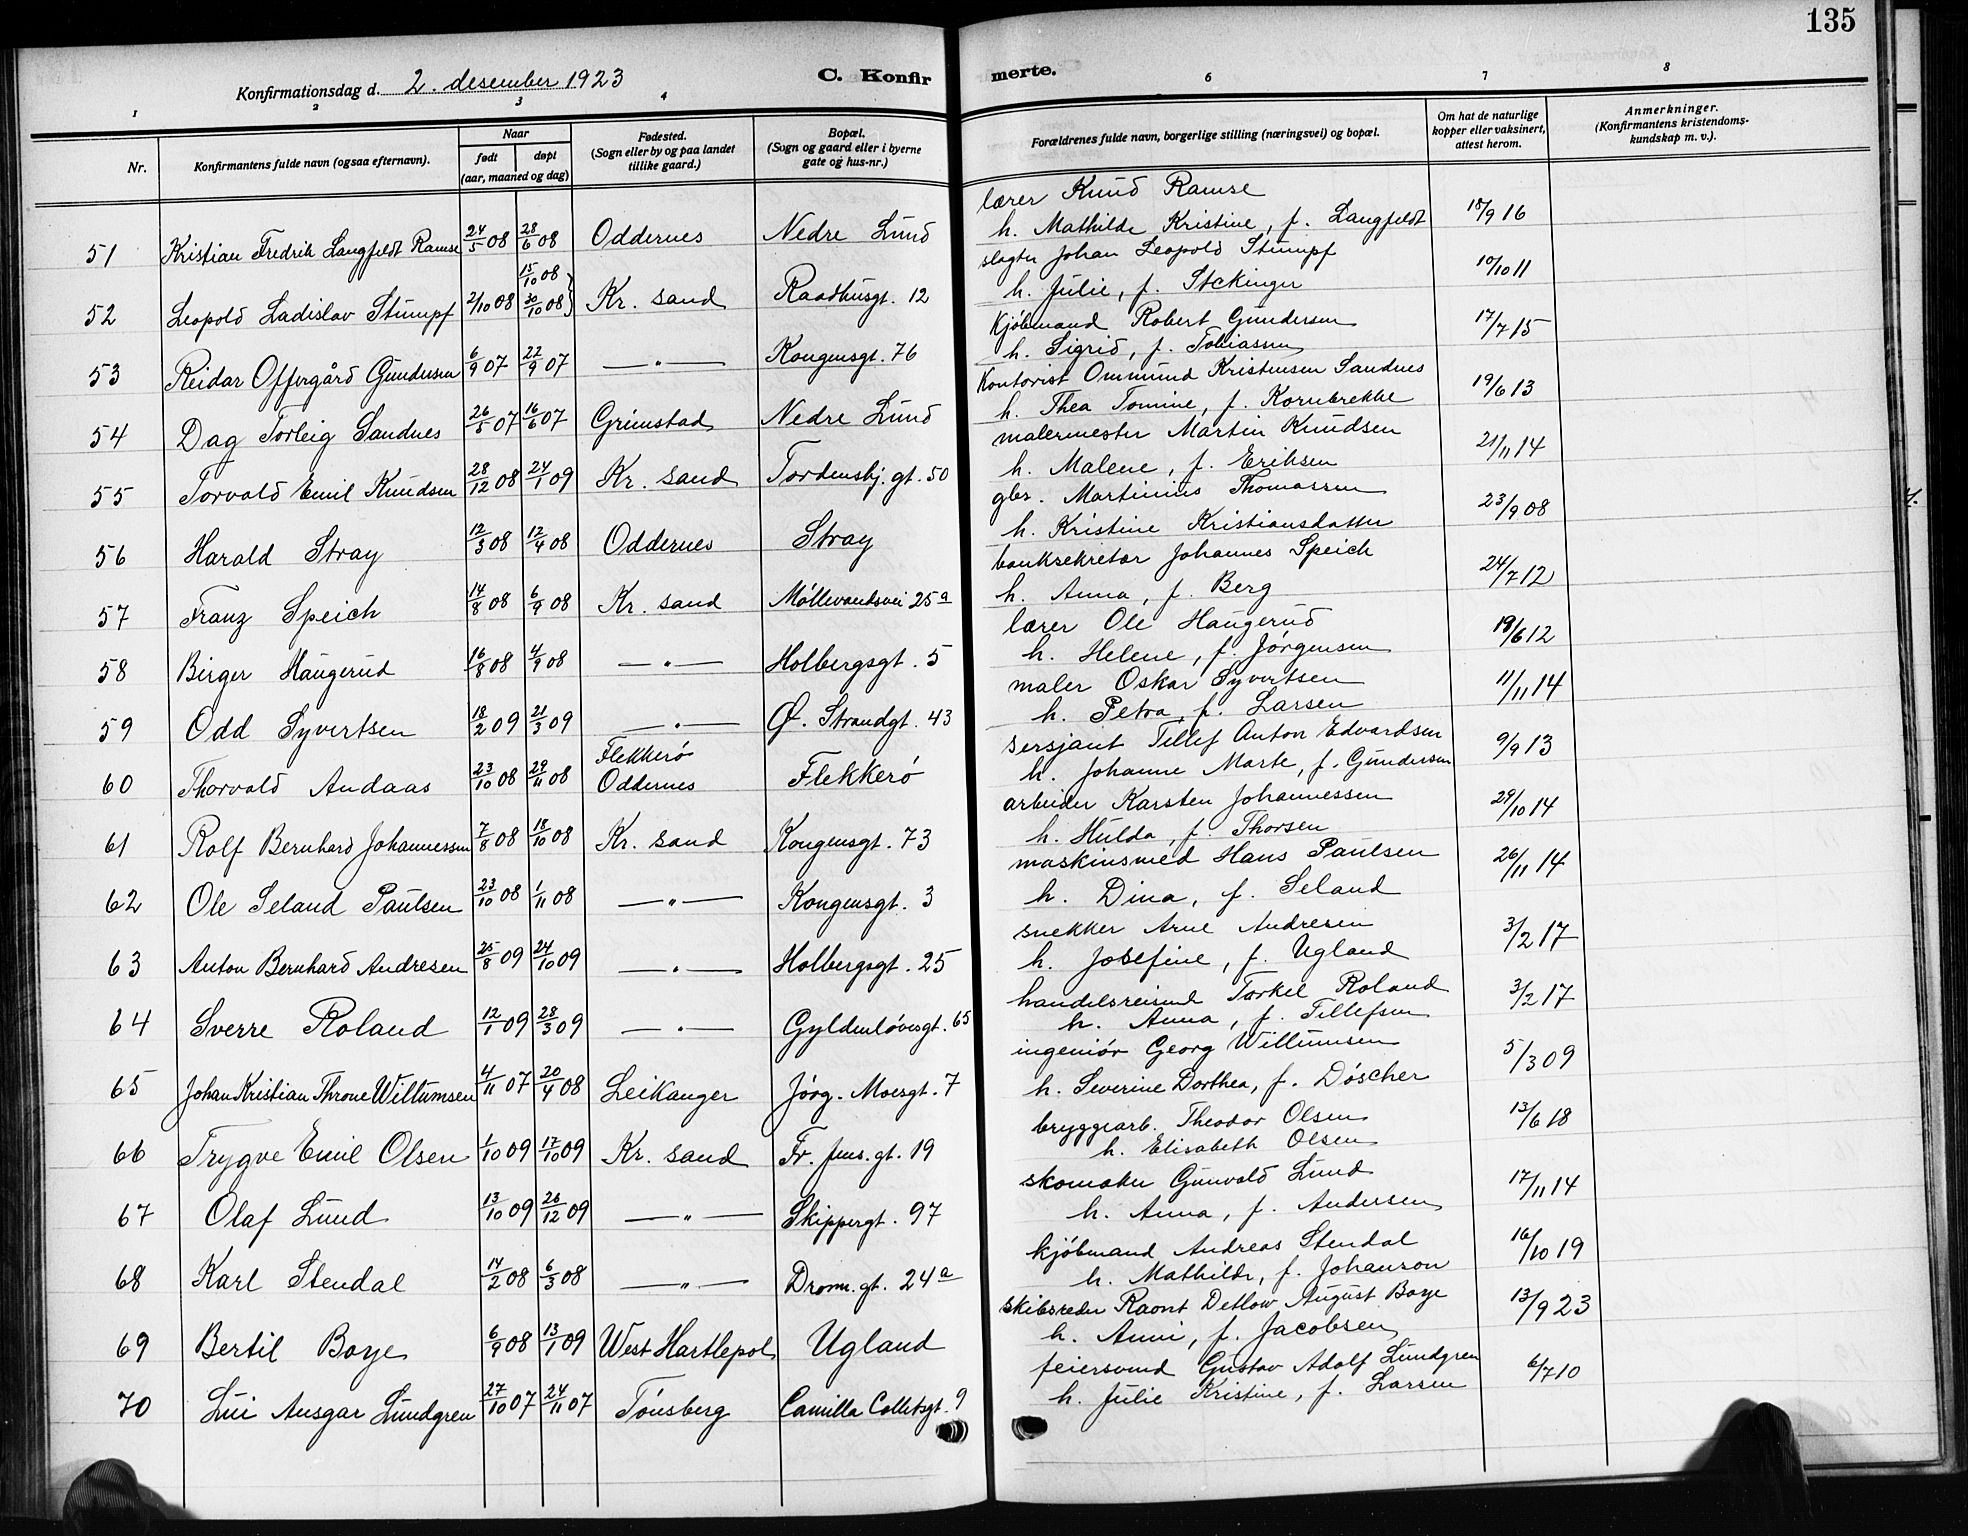 135
Konfirmationsdag d. 2. desember 1923
C. Konfirmerte.
1 2 3 4 6 7 8
Nr.
Konfirmantens fulde navn (ogsaa efternavn).
Naar
født
døpt
(aar, maaned og dag)
Fødested.
(Sogn eller by og paa landet
tillike gaard.)
Bopæl.
(Sogn og gaard eller i byerne
gate og hus-nr.)
Forældrenes fulde navn, borgerlige stilling (næringsvei) og bopæl.
Om hat de naturlige
kopper eller vaksinert,
attest herom.
Anmerkninger.
(Konfirmantens kristendoms-
kundskap m. v.).
lærer Knud Ramse
51 Kristian Fredrik Langfeldt Ramse 24/5 08 28/6 08 Oddernes Nedre Lund h. Mathilde Kristine, f. Langfeldt 18/9 16
15/10 08 slagter Johan Leopold Stumpf
52 Leopold Ladislav Stumpf 2/10 08 30/10 08 Kr. sand Raadhusgt. 12 h. Julie, f. Stckinger 10/10 11
Kjøbmand Robert Gundersen
53 Reidar Offergård Gundersen 6/9 07 22/9 07 —〃— Kongensgt. 76 h. Sigrid, f. Tobiassen 17/7 15
Kontorist Ommund Kristensen Sandnes
54 Dag Torleig Sandnes 26/5 07 16/6 07 Grimstad Nedre Lund h. Thea Tomine, f. Kornbrekke 19/6 13
malermester Martin Knudsen
55 Torvald Emil Knudsen 28/12 08 24/1 09 Kr. sand Tordenskj. gt. 50 h. Malene, f. Eriksen 21/11 14
gbr. Martinius Thomassen
56 Harald Stray 12/3 08 12/4 08 Oddernes Stray h. Kristine Kristiansdatter 23/9 08
banksekretær Johannes Speich
57 Franz Speich 14/8 08 6/9 08 Kr. sand Møllevandsvei 25a h. Anna, f. Berg 24/7 12
lærer Ole Haugerud
58 Birger Haugerud 16/8 08 4/9 08 —〃— Holbergsgt. 5 h. Helene, f. Jørgensen 19/6 12
maler Oskar Syvertsen
59 Odd Syvertsen 18/2 09 21/3 09 —〃— Ø. Strandgt. 43 h. Petra, f. Larsen 11/11 14
Flekkerø sersjant Tellef Anton Edvardsen
60 Thorvald Andaas 23/10 08 29/11 08 Oddernes Flekkerø h. Johanne Marte, f. Gundersen 9/9 13
arbeider Karsten Johannessen
61 Rolf Bernhard Johannessen 7/8 08 18/10 08 Kr. sand Kongensgt. 73 h. Hulda, f. Thorsen 29/10 14
maskinsmed Hans Paulsen
62 Ole Seland Paulsen 23/10 08 1/11 08 —〃— Kongensgt. 3 h. Dina, f. Seland 26/11 14
snekker Arne Andresen
63 Anton Bernhard Andresen 25/8 09 24/10 09 —〃— Holbergsgt. 25 h. Josefine, f. Ugland 3/2 17
handelsreisend Torkel Roland
64 Sverre Roland 12/1 09 28/3 09 —〃— Gyldenløvesgt. 65 h. Anna, f. Tellefsen 3/2 17
ingeniør Georg Willumsen
65 Johan Kristian Throne Willumsen 4/11 07 20/4 08 Leikanger Jørg. Moesgt. 7 h. Severine Dorthea, f. Døscher 5/3 09
bryggearb. Theodor Olsen
66 Trygve Emil Olsen 1/10 09 17/10 09 Kr. sand Fr. jens. gt. 19 h. Elisabeth Olsen 13/6 18
skomaker Gunvald Lund
67 Olaf Lund 13/10 09 26/12 09 —〃— Skippergt. 97 h. Anna, f. Andersen 17/11 14
kjøbmand Andreas Stendal
68 Karl Stendal 14/2 08 6/3 08 —〃— Dronn. gt. 24a h. Mathilde, f. Johanson 16/10 19
skibsreder Raont Detlow August Boye
69 Bertil Boye 6/9 08 13/1 09 West Hartlepol Ugland h. Anni, f. Jacobsen 13/9 23
feiersvend Gustav Adolf Lundgren
70 Lui Ansgar Lundgren 27/10 07 24/11 07 Tønsberg Camilla Colletsgt. 9 h. Julie Kristine, f. Larsen 6/7 10